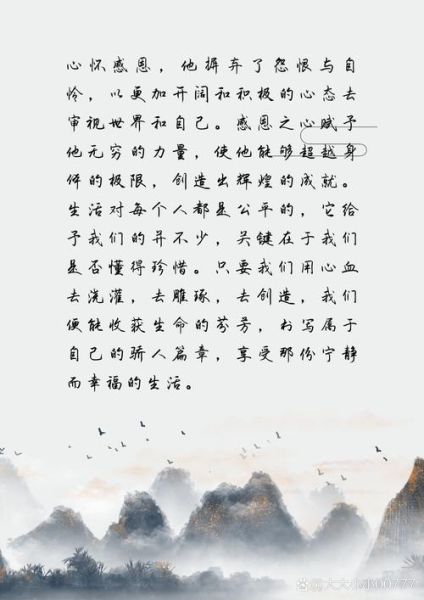 心怀感恩，他摒弃了怨恨与自
怜，以更加开阔和积极的心态去
审视世界和自己。感恩之心赋予
他无穷的力量，使他能够超越身
体的极限，创造出辉煌的成就。
生活对每个人都是公平的，它给
予我们的并不少，关键在于我们
是否懂得珍惜。只要我们用心血
去浇灌，去雕琢，去创造，我们
便能收获生命的芬芳，书写属于
自己的骄人篇章，享受那份宁静
而幸福的生活。